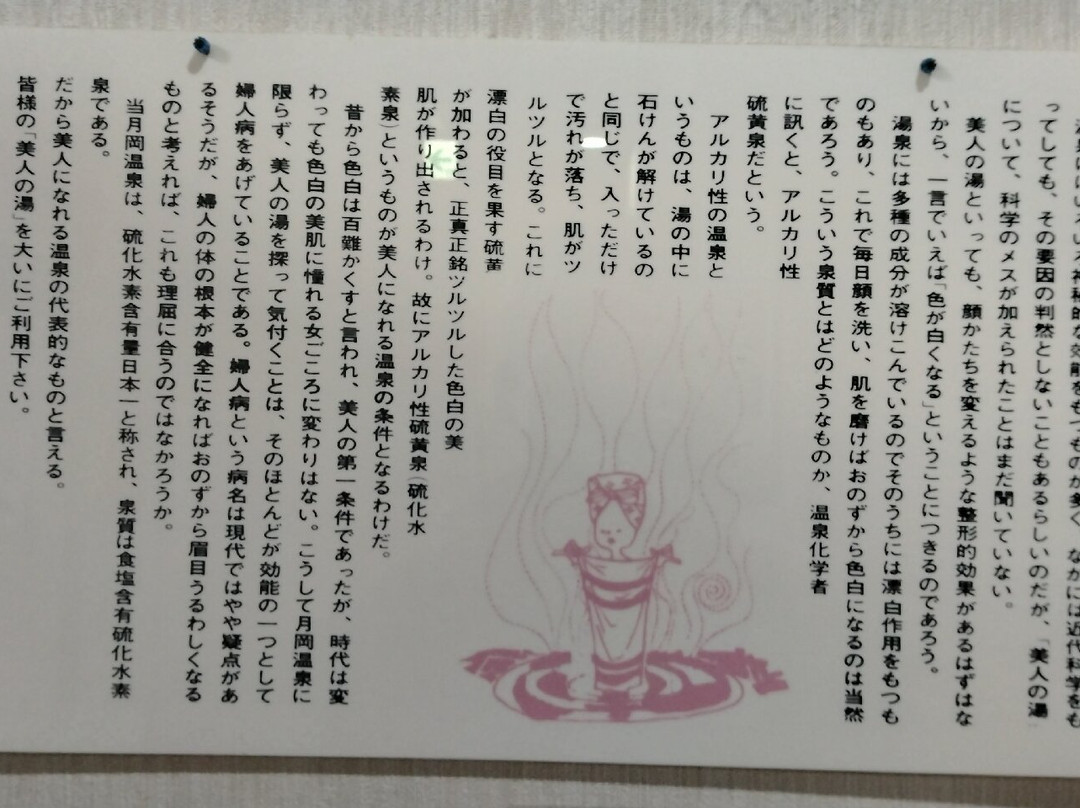 ってしても、その要因の判然としないこともあるらしいのだが、「美人の湯」
について、科学のメスが加えられたことはまだ聞いていない。
美人の湯といっても、顔かたちを変えるような整形的効果があるはずはな
いから、一言でいえば「色が白くなる」ということにつきるのであろう。
湯泉には多種の成分が溶けこんでいるのでそのうちには漂白作用をもつも
のもあり、これで毎日顔を洗い、肌を磨けばおのずから色白になるのは当然
であろう。こういう泉質とはどのようなものか、温泉化学者
に訊くと、アルカリ性
硫黄泉だという。
アルカリ性の温泉と
いうものは、湯の中に
石けんが解けているの
と同じで、入っただけ
で汚れが落ち、肌がツ
ルツルとなる。これに
漂白の役目を果す硫黄
が加わると、正真正銘ツルツルした色白の美
肌が作り出されるわけ。故にアルカリ性硫黄泉(硫化水
素泉)というものが美人になれる温泉の条件となるわけだ。
昔から色白は百難かくすと言われ、美人の第一条件であったが、時代は変
わっても色白の美肌に憧れる女ごころに変わりはない。こうして月岡温泉に
限らず、美人の湯を探って気付くことは、そのほとんどが効能の一つとして
婦人病をあげていることである。婦人病という病名は現代ではやや疑点があ
るそうだが、婦人の体の根本が健全になればおのずから眉目うるわしくなる
ものと考えれば、これも理屈に合うのではなかろうか。
当月岡温泉は、硫化水素含有量日本一と称され、泉質は食塩含有硫化水素
泉である。
だから美人になれる温泉の代表的なものと言える。
皆様の「美人の湯」を大いにご利用下さい。